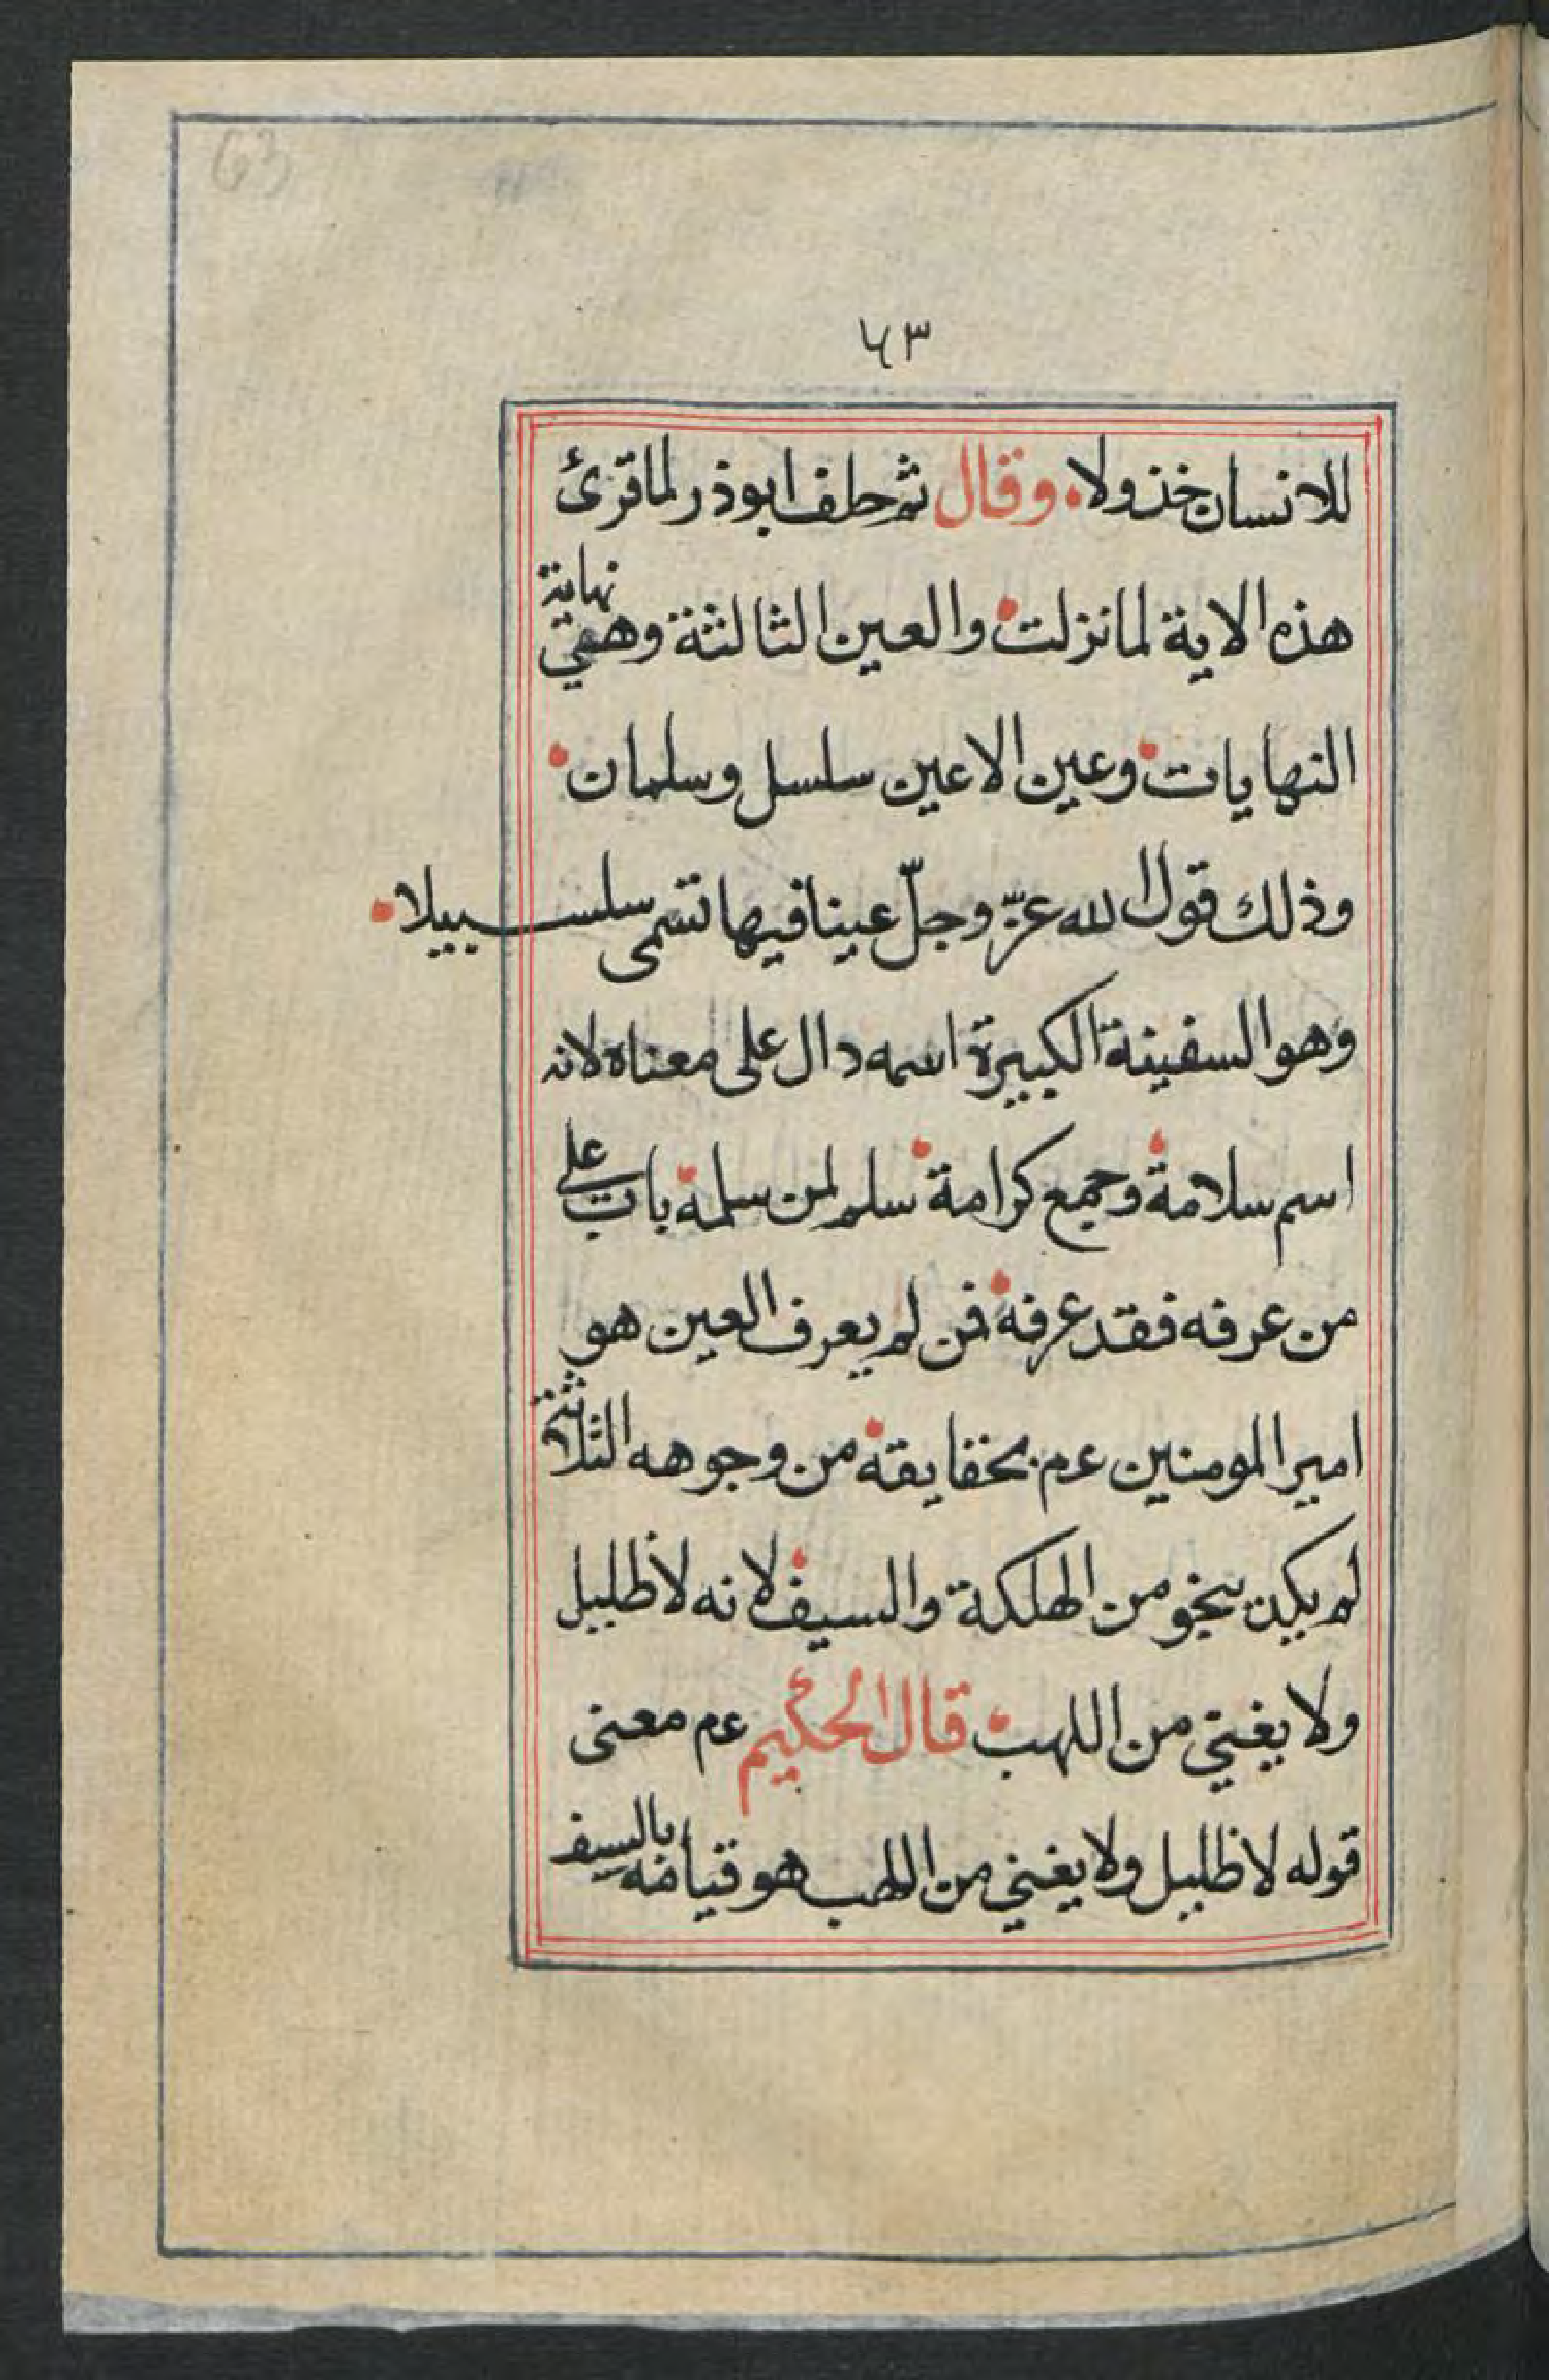 63
٦٣
للانسان خذولا. وقال ثم حلف ابوذر لما قرئ
هذه الاية لما نزلت والعين الثالثة وهي نهاية
النهايات وعين الاعين سلسل وسلمان
وذلك قول الله عزّ وجلّ عينا فيها تسمى سلسبيلا
وهو السفينة الكبيرة اسمه دال على معناه لانه
اسم سلامة وجمع كرامة سلم لمن سلمه باب على
من عرفه فقد عرفه فمن لم يعرف العين هو
امير المومنين عم بحقايقه من وجوهه الثلاثة
لم يكن ينجو من الهلكة والسيف لانه لا ظليل
ولا يغني من اللهب قال الحكيم عم معنى
قوله لا ظليل ولا يغني من اللهب هو قيامه بالسيف